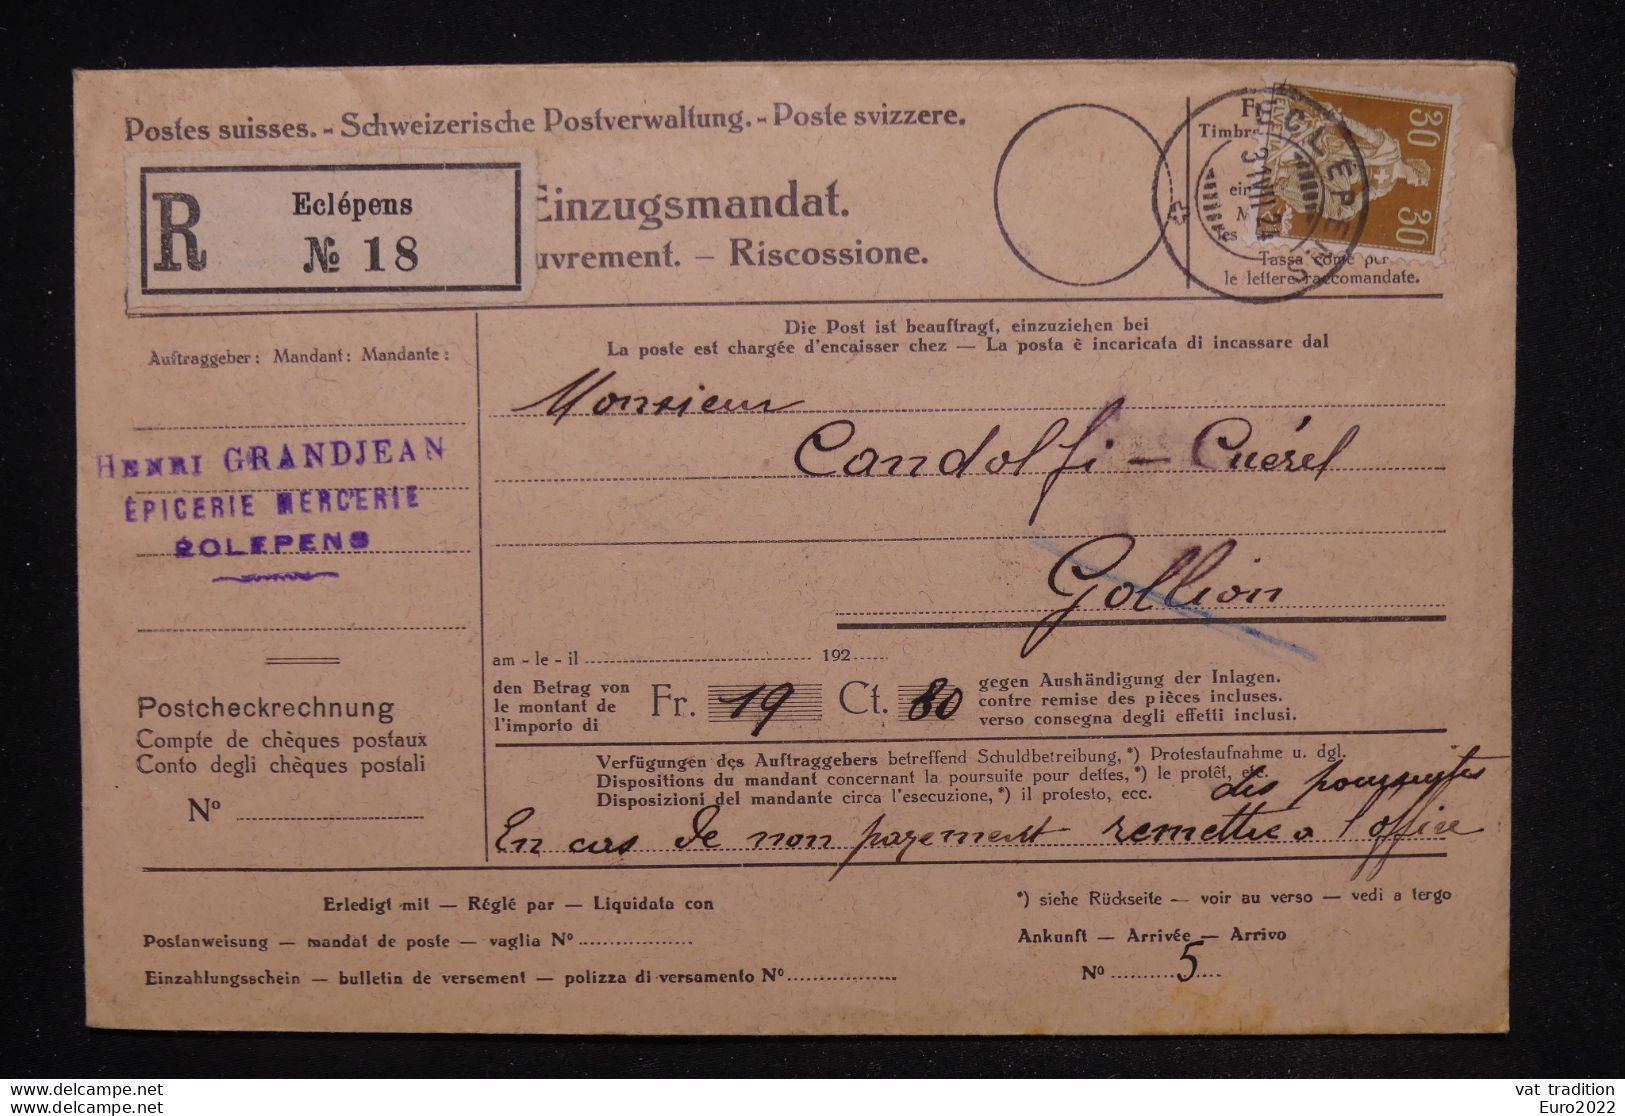 Postes suisses. - Schweizerische Postverwaltung. - Poste svizzere.
R
Eclépens
№ 18
Einzugsmandat.
uvrement. – Riscossione.
Timbre
ein
les
Tassa come per
le lettere raccomandate.
HELVETIA
30 30
ECLÉPENS
31 VII 24
Auftraggeber: Mandant: Mandante:
HENRI GRANDJEAN
ÉPICERIE MERCERIE
ÉCLEPENS
Die Post ist beauftragt, einzuziehen bei
La poste est chargée d'encaisser chez — La posta è incaricata di incassare dal
Monsieur
Candolfi - Cuérel
Gollion
am - le - il 192
den Betrag von
le montant de
l'importo di
Fr. 19 Ct. 80
gegen Aushändigung der Inlagen.
contre remise des pièces incluses.
verso consegna degli effetti inclusi.
Postcheckrechnung
Compte de chèques postaux
Conto degli chèques postali
Nº
Verfügungen des Auftraggebers betreffend Schuldbetreibung,*) Protestaufnahme u. dgl.
Dispositions du mandant concernant la poursuite pour dettes,*) le protêt, etc.
Disposizioni del mandante circa l'esecuzione,*) il protesto, ecc.
des poursuites
En cas de non payement remettre a l'office
Erledigt mit — Réglé par — Liquidata con
*) siehe Rückseite — voir au verso — vedi a tergo
Postanweisung — mandat de poste — vaglia Nº
Ankunft — Arrivée — Arrivo
Einzahlungsschein — bulletin de versement — polizza di versamento Nº
Nº 5
www.delcampe.net
www.delcampe.net
vat tradition
Euro2022